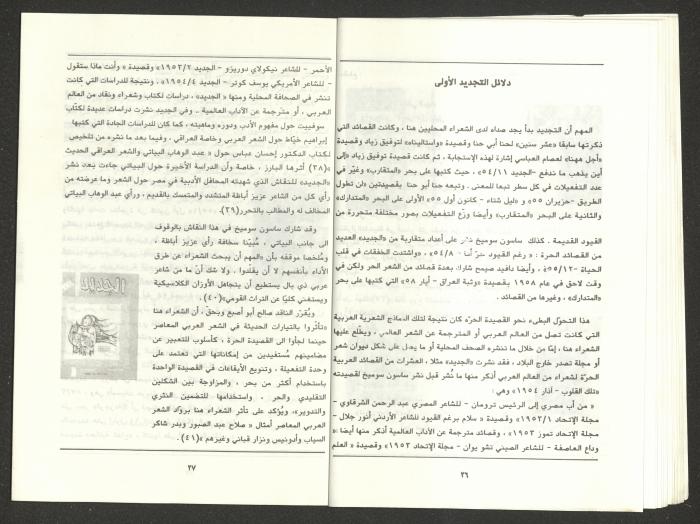 دلائل التجديد الأولى
المهم أن التجديد بدأ يجد صداه لدى الشعراء المحليين هنا ، وكانت القصائد التي
ذكرتها سابقا «عشر سنين» لحنا أبي حنا وقصيدة «واستالينا» لتوفيق زياد وقصيدة
«أجل هه‍نا» لعصام العباسي إشارة لهذه الإستجابة ، ثم كانت قصيدة توفيق زياد «إلى
أين يذهب ما ندفع -الجديد ٥٤/١١» ، حيث كتبها على بحر «المتقارب» وغيّر في
عدد التفعيلات في كل سطر تبعا للمعنى . وتبعه حنا أبو حنا بقصيدتين «لن تطول
الطريق -حزيران ٥٥» و «ليل شتاء - كانون أول ٥٥» الأولى على البحر «المتدارك»
والثانية على البحر «المتقارب» وأيضا وزّع التفعيلات بصور مختلفة متحررة من
القيود القديمة . كذلك ساسون سوميخ نشر على أعداد متقاربة من «الجديد» العديد
من القصائد الحرة : « رغم القيود - ٥٤/٨» ، «واشتدت الخفقات في قلب
الحياة -٥٥/١٢» ، وأيضا دافيد صيمح شارك بعدة قصائد من الشعر الحر ولكن في
وقت لاحق في عام ١٩٥٨ بقصيدة «وثبة العراق - أيار ٥٨» التي كتبها على بحر
«المتدارك» ، وغيرها من القصائد .
هذا التحوّل البطيء نحو القصيدة الحرّة كان نتيجة لتلك النماذج الشعرية العربية
التي كانت تصل من العالم العربي أو المترجمة عن الشعر العالمي ، ويطّلع عليها
الشعراء هنا ، إمّا من خلال ما تنشره الصحف المحلية أو ما يصل على شكل ديوان شعر
أو مجلة تصدر خارج البلاد ، فقد نشرت «الجديد» مثلا ، العشرات من القصائد العربية
الحرّة لشعراء من العالم العربي أذكر منها ما نُشر قبل نشر ساسون سوميخ لقصيدته
«تلك القلوب - آذار ١٩٥٤» وهي :
« من أب مصري إلى الرئيس ترومان - للشاعر المصري عبد الرحمن الشرقاوي -
مجلة الإتحاد ١٩٥٣/١» وقصيدة « سلام برغم القيود للشاعر الأردني أنور جلال -
مجلة الإتحاد تموز ١٩٥٣» ، وقصائد مترجمة عن الآداب العالمية أذكر منها أيضا :«
وداع العاصفة - للشاعر الصيني تشو يوان - مجلة الإتحاد ١٩٥٣» وقصيدة « العلم
٣٦
الأحمر - للشاعر نيكولاي دوريزو - الجديد ١٩٥٣/٢» وقصيدة « وأنت ماذا ستقول
- للشاعر الأمريكي يوسف كوتر - الجديد ١٩٥٤/٤» . ونتيجة للدراسات التي كانت
تنشر في الصحافة المحلية ومنها « الجديد» ، دراسات لكتاب وشعراء ونقاد من العالم
العربي ، أو مترجمة عن الآداب العالمية - وفي الجديد نشرت دراسات عديدة لكتّاب
سوفييت حول مفهوم الأدب ودوره وماهيته ، كما كان للدراسات الجادة التي كتبها
إبراهيم خيّاط حول الشعر العربي وخاصة العراقي ، وفيما بعد ما نشره من تلخيص
لكتاب الدكتور إحسان عباس حول « عبد الوهاب البياتي والشعر العراقي الحديث
»(٣٨) أثرها البارز . خاصة وأن الدراسة الأخيرة حول البياتي جاءت بعد نشر
«الجديد» للنقاش الذي شهدته المحافل الأدبية في مصر حول الشعر وما عرضته من
رأي كل من الشاعر عزيز أباظة المتشدد والمتمسك بالقديم ، ورأي عبد الوهاب البياتي
المخالف له والمطالب بالتحرر(٣٩).
وقد شارك ساسون سوميخ في هذا النقاش بالوقوف
الى جانب البياتي ، مُبيّنا سخافة رأي عزيز أباظة ،
ومُلخصا موقفه بأن «المهم أن يبحث الشعراء عن طرق
الأداء بأنفسهم لا أن يقلّدوا . ولا شك أنّ ما من شاعر
عربي ذي بال يستطيع أن يتجاهل الأوزان الكلاسيكية
ويستغني كليّا عن التراث القومي»(٤٠).
ويُقرّر الناقد صالح أبو أصبع وبحق ، أن الشعراء هنا
«تأثروا بالتيارات الحديثة في الشعر العربي المعاصر
حينما لجأوا الى القصيدة الحرة ، كأسلوب للتعبير عن
مضامينهم مُستفيدين من إمكاناتها التي تعتمد على
وحدة التفعيلة ، وتنويع الأيقاعات في القصيدة الواحدة
باستخدام أكثر من بحر ، والمزاوجة بين الشكلين
التقليدي والحر ، واستخدامها للتضمين النثري
والتدوير». ويُؤكد على تأثر الشعراء هنا بروّاد الشعر
العربي المعاصر أمثال « صلاح عبد الصبور وبدر شاكر
السياب وأدونيس ونزار قباني وغيرهم »(٤١).
الجديد
٣٧